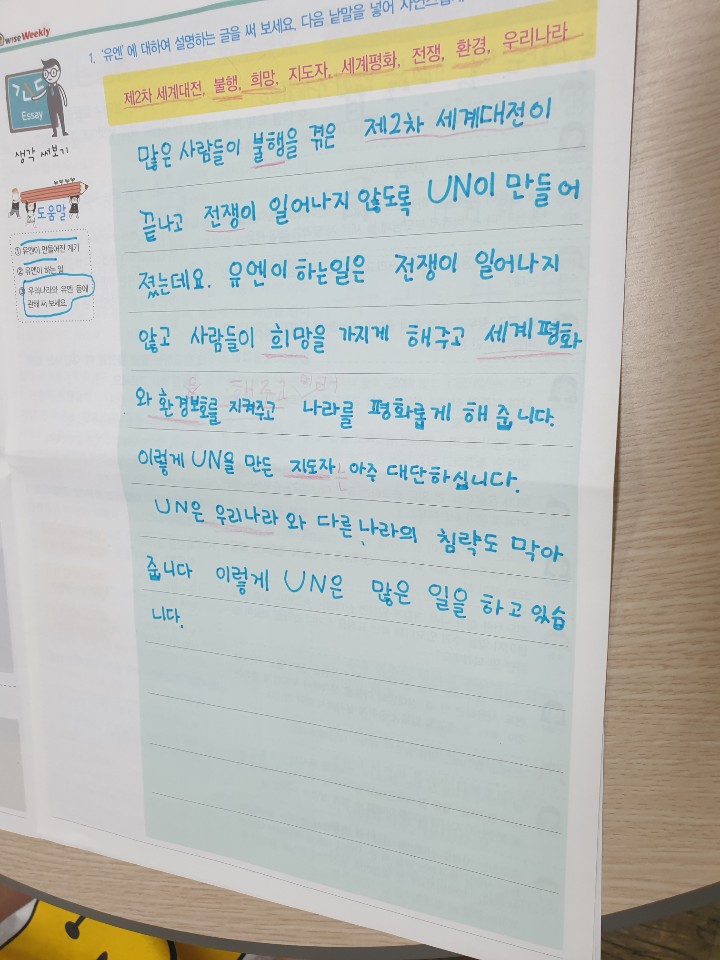 wiseWeekly
1. '유엔'에 대하여 설명하는 글을 써 보세요. 다음 낱말을 넣어
제2차 세계대전, 불행, 희망, 지도자, 세계평화, 전쟁, 환경, 우리나라
간드
Essay
생각 써보기
도움말
① 유엔이 만들어진 계기
② 유엔이 하는 일
③ 우리나라와 유엔 등에
관해 써 보세요.
많은 사람들이 불행을 겪은 제2차 세계대전이
끝나고 전쟁이 일어나지 않도록 UN이 만들어
졌는데요. 유엔이 하는일은 전쟁이 일어나지
않고 사람들이 희망을 가지게 해주고 세계평화
을 해주고
와 환경보호를 지켜주고 나라를 평화롭게 해 줍니다.
이렇게 UN을 만든 지도자는 아주 대단하십니다.
UN은 우리나라와 다른 나라의 침략도 막아
줍니다 이렇게 UN은 많은 일을 하고 있습
니다.